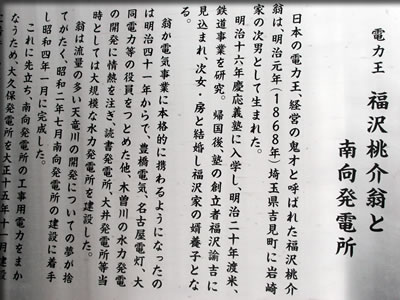 電力王　福沢桃介翁と
南向発電所
日本の電力王、経営の鬼才と呼ばれた福沢桃介
翁は、明治元年（1868年）埼玉県吉見町に岩崎
家の次男として生まれた。
明治十六年慶応義塾に入学し、明治二十年渡米、
鉄道事業を研究。帰国後、塾の創立者福沢諭吉に
見込まれ、次女・房と結婚し福沢家の婿養子とな
る。
翁が電気事業に本格的に携わるようになったの
は明治四十一年からで、豊橋電気、名古屋電灯、大
同電力等の役員をつとめた他、木曽川の水力発電
の開発に情熱を注ぎ、読書発電所、大井発電所等当
時としては大規模な水力発電所を建設した。
翁は流量の多い天竜川の開発についての夢が捨
てがたく、昭和二年七月南向発電所の建設に着手
し昭和四年一月に完成した。
これに先立ち、南向発電所の工事用電力をまか
なうため、大久保発電所を大正十五年十一月建設